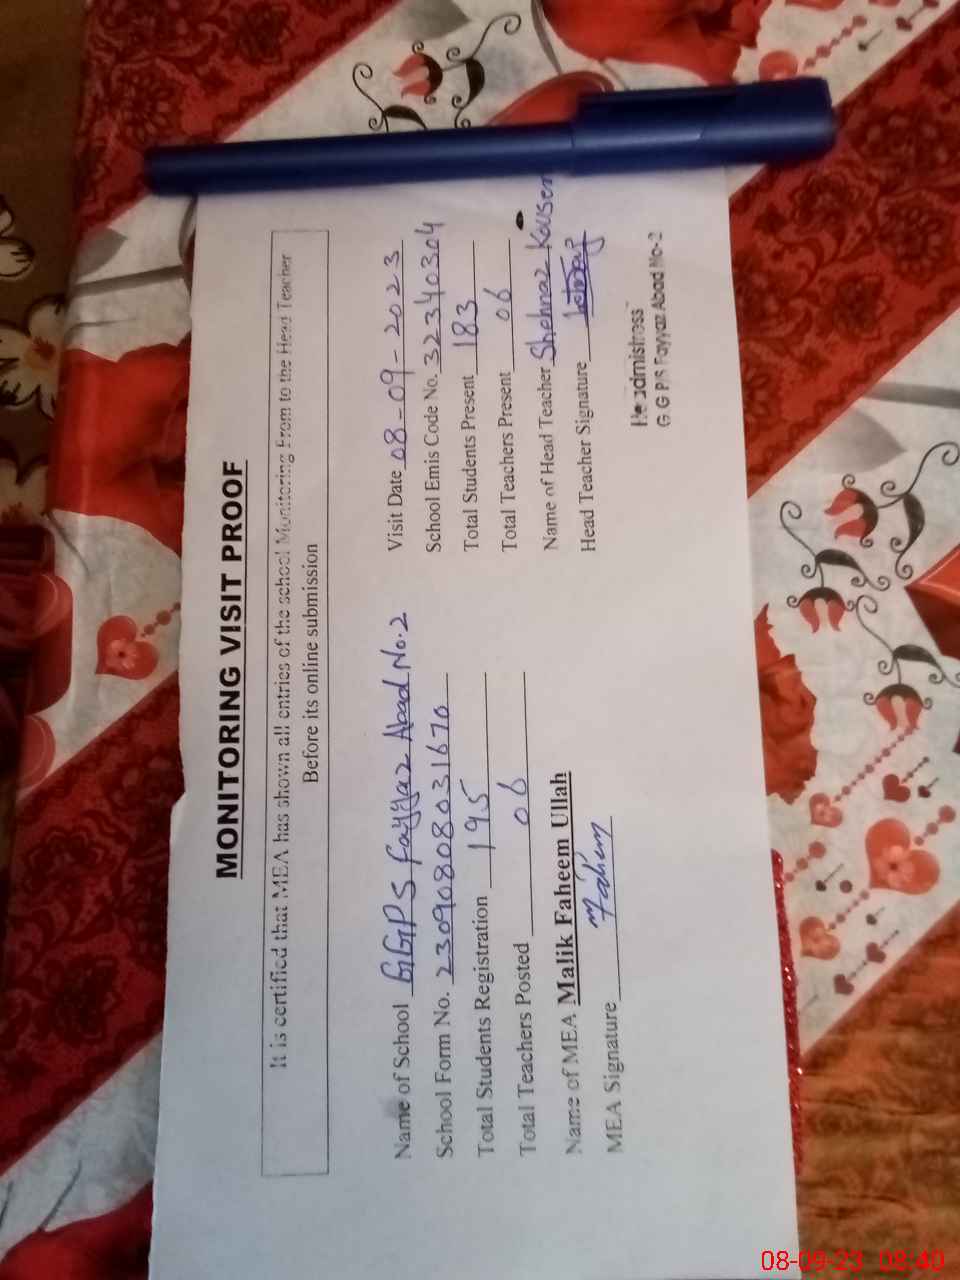 MONITORING VISIT PROOF
It is certified that MEA has shown all entries of the school Monitoring From to the Head Teacher
Before its online submission
Name of School GGPS Fayyaz Abad No.2
Visit Date 08-09-2023
School Form No. 23090808031670
School Emis Code No. 32340304
Total Students Registration 195
Total Students Present 183
Total Teachers Posted 06
Total Teachers Present 06
Name of MEA Malik Faheem Ullah
Name of Head Teacher Shehnaz Kousen
MEA Signature Fahem
Head Teacher Signature
Headmistress
G.G.P/S Fayyaz Abad No-2
08-09-23 08:40